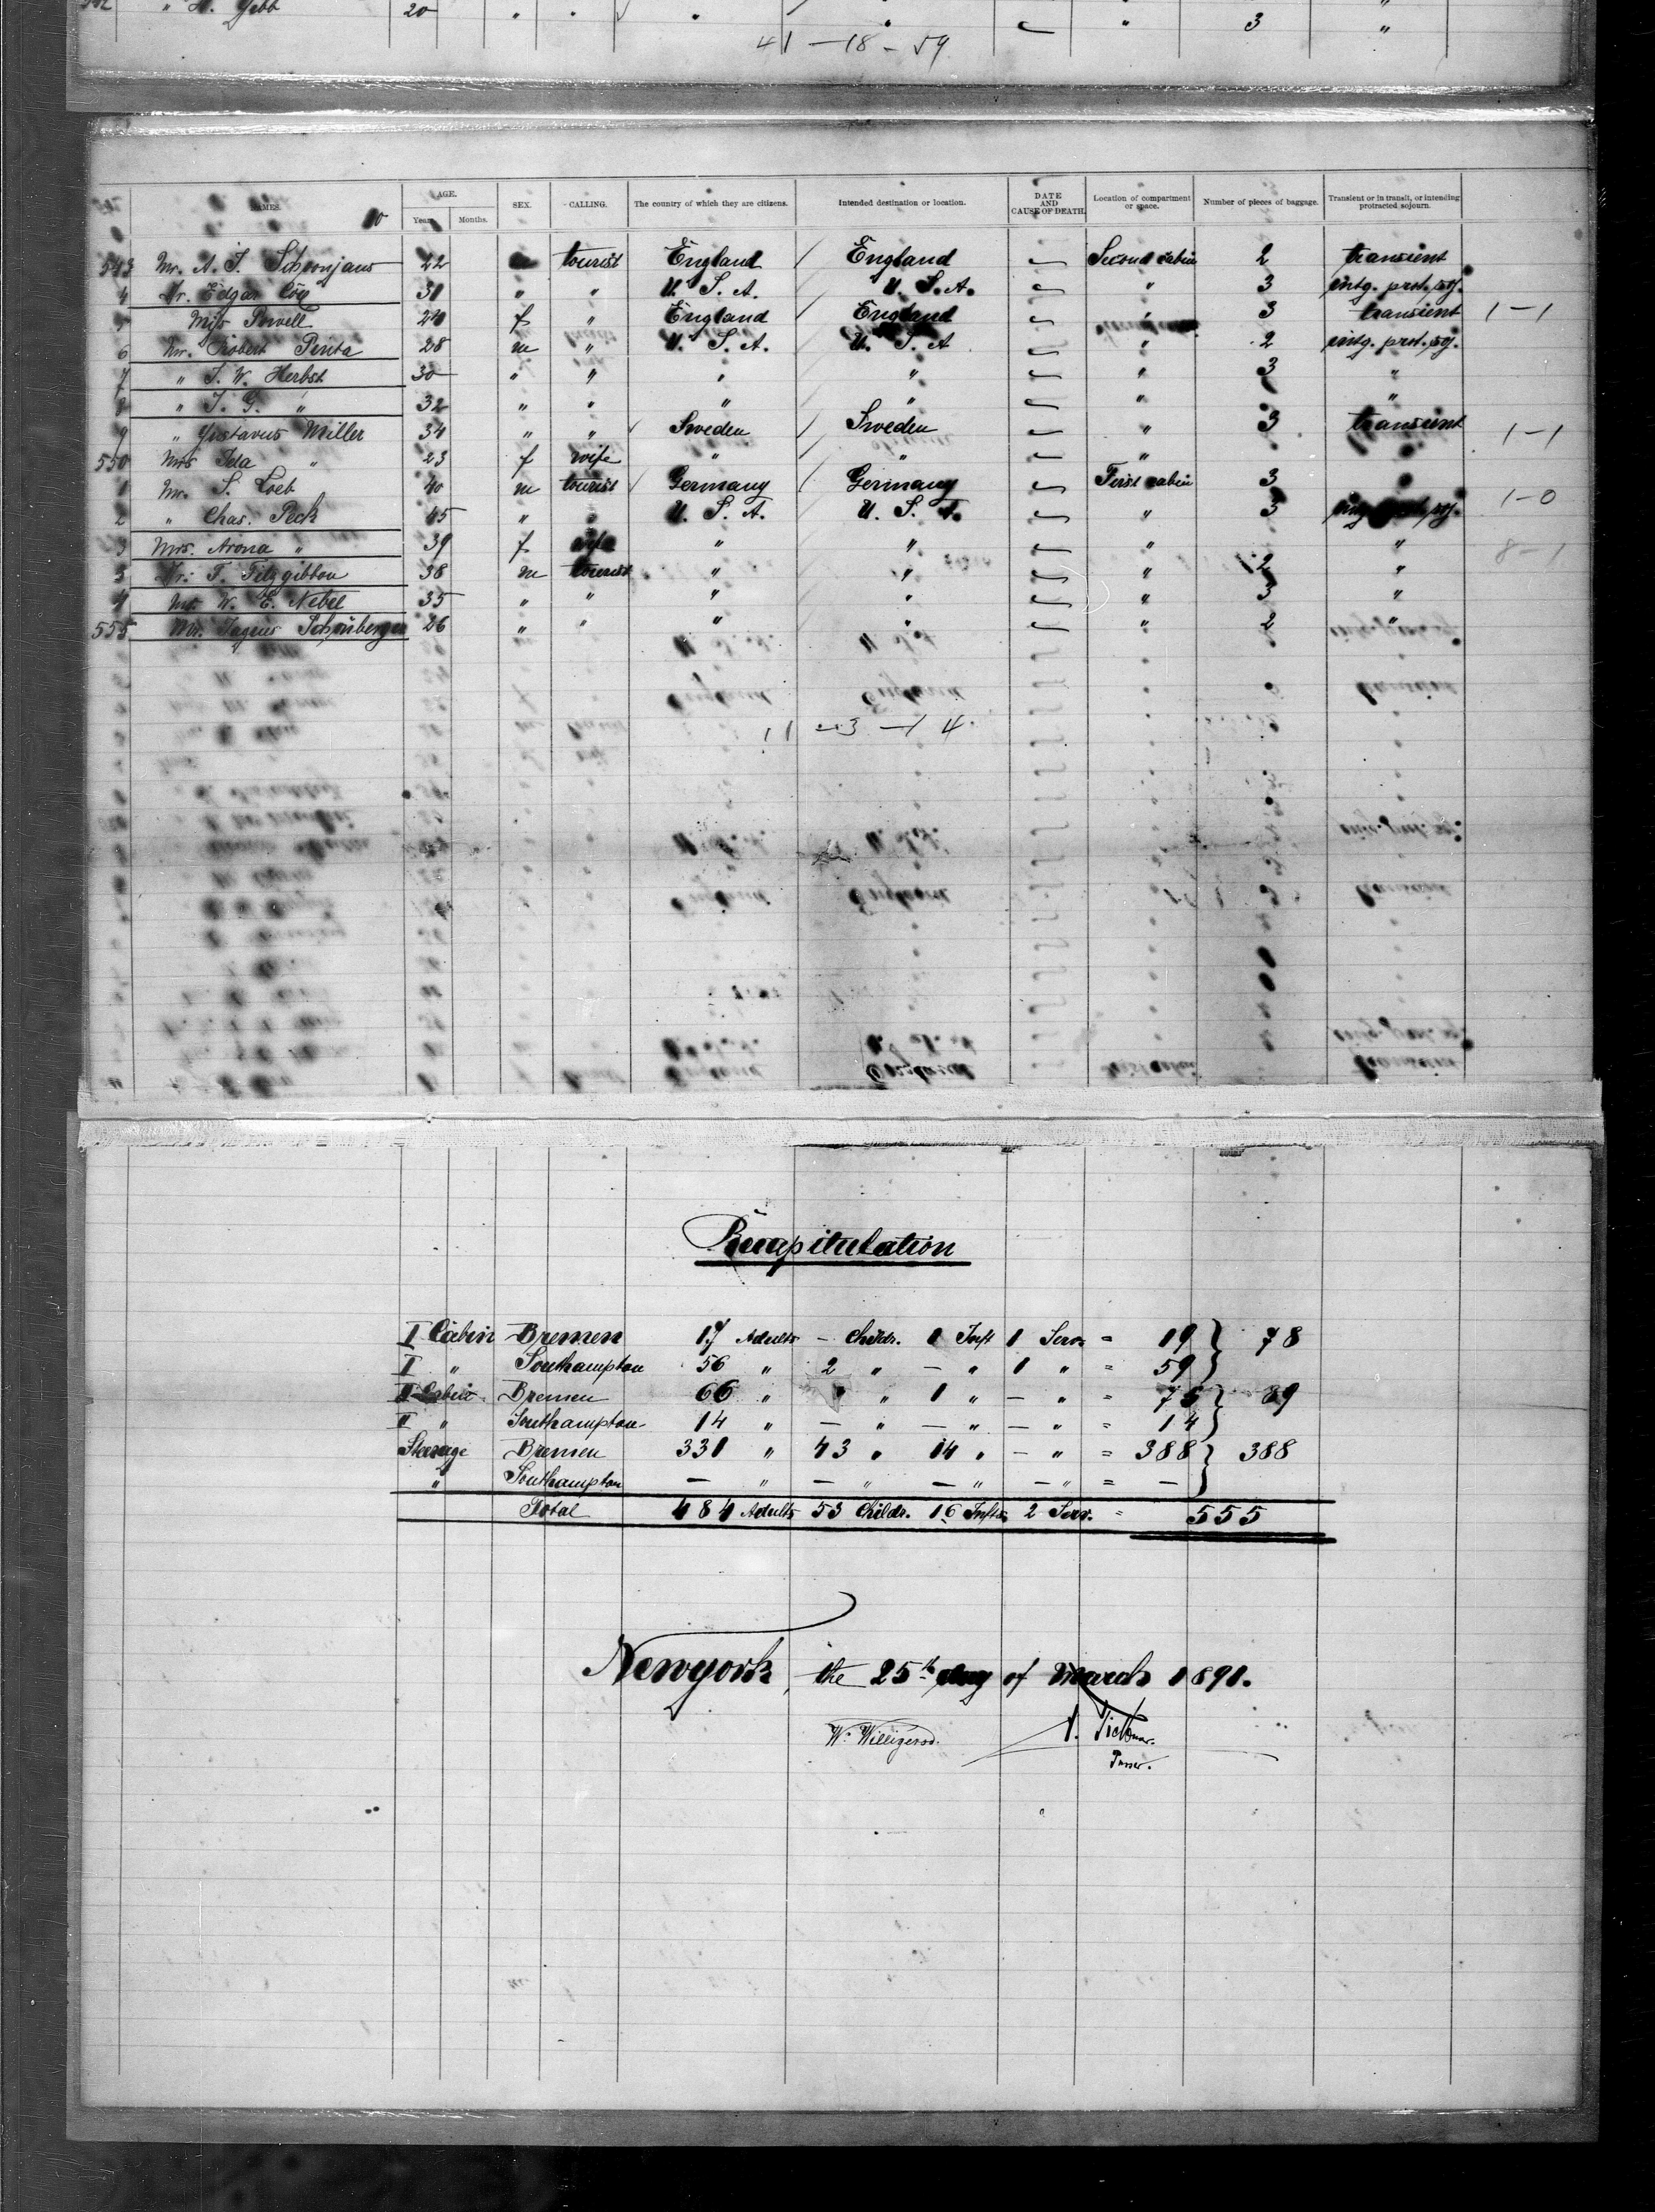 " H. Gibb 20 " " " " " 3 "
41 - 18 - 59
NAMES. AGE. Years Months. SEX. CALLING. The country of which they are citizens. Intended destination or location. DATE AND CAUSE OF DEATH. Location of compartment or space. Number of pieces of baggage. Transient or in transit, or intending protracted sojourn.
543 Mr. A. J. Schoonjans 22 tourist England / England Second cabin 2 transient
4 Dr. Edgar 31 " " U. S. A. U. S. A. " 3 intg. prot. soj.
5 Miss Powell 24 f " England England " 3 transient 1-1
6 Mr. Robert Penta 28 m " U. S. A. U. S. A " 2 intg. prot. soj.
7 " J. W. Herbst 30 " " " " " 3 "
8 " J. G. " 32 " " " " " "
9 " Gustavus Miller 34 " " Sweden / Sweden " 3 transient 1-1
550 Mrs Ida " 23 f wife " " "
1 Mr. S. Loeb 40 m tourist Germany Germany First cabin 3 "
2 " Chas. Peck 45 " " U. S. A. U. S. A. " 3 intg. prot. soj. 1-0
3 Mrs. Arona " 39 f wife " " " " 8-1
3 Mr. F. Fitzgibbon 38 m tourist " " " 2 "
4 Mr. W. E. Nebel 35 " " " " " 3 "
555 Mr. Schönberger 26 " " " " " 2 "
11 - 3 - 14.
Recapitulation
I Cabin Bremen 17 Adults - Childr. 1 Inft 1 Serv. = 19 } 78
I " Southampton 56 " 2 " - " 1 " = 59 }
II Cabin Bremen 66 " " 1 " - " = 75 } 89
II " Southampton 14 " - " - " - " = 14 }
Steerage Bremen 331 " 43 " 14 " - " = 388 } 388
" Southampton - " - " - " - " = - }
Total 484 Adults 53 Childr. 16 Infts 2 Serv. = 555
Newyork, the 25th day of March 1891.
W. Willigerod.
Purser.